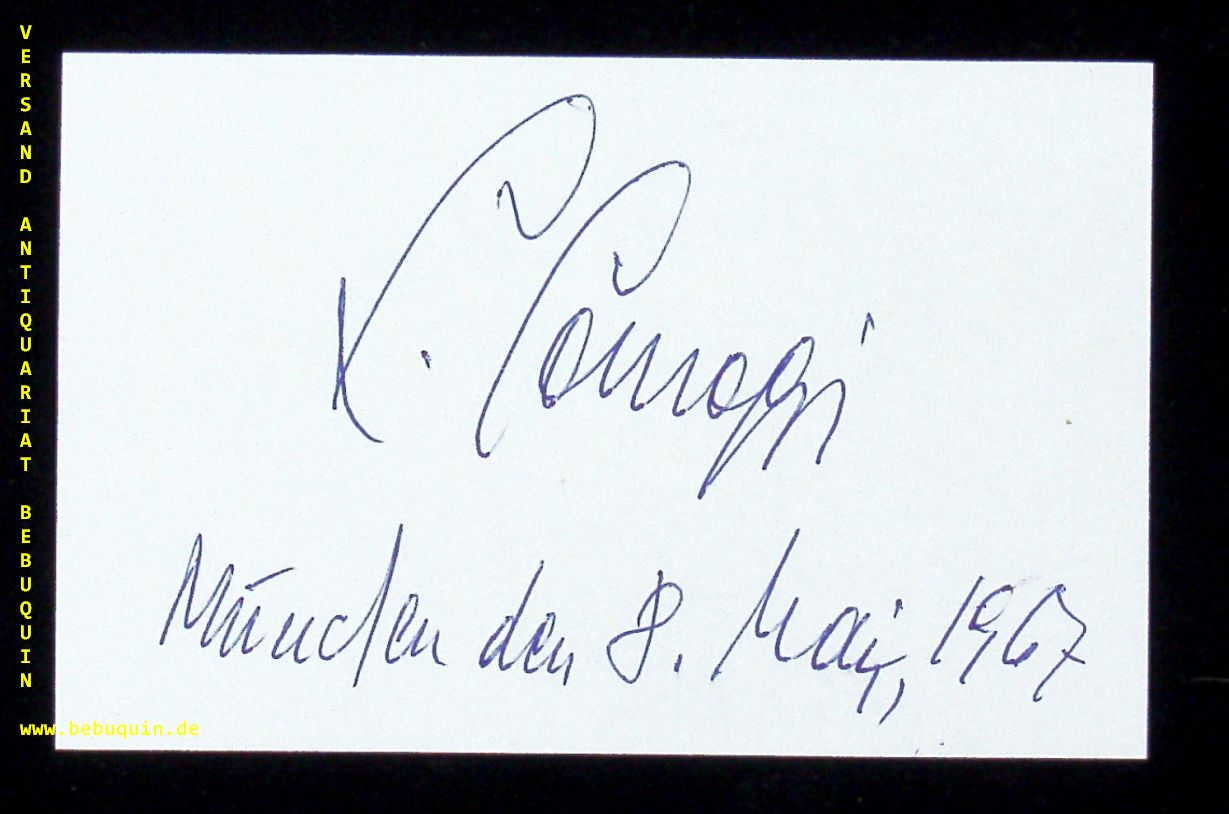 VERSAND ANTIQUARIAT BEBUQUIN
München den 8. Mai, 1967
www.bebuquin.de